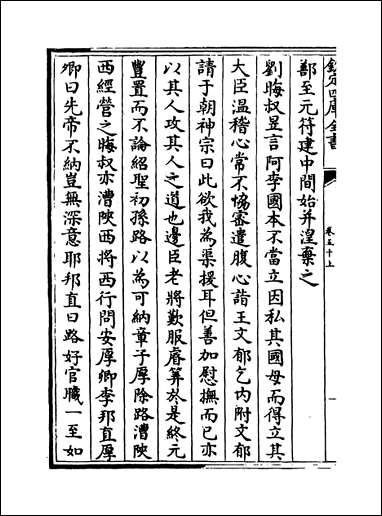 欽定四庫全書
卷五十上
鄯至元符建中間始并湟棄之
劉晦叔昱言阿李國本不當立因私其國母而得立其
大臣温稽心常不愜密遣腹心詣王文郁乞内附文郁
請于朝神宗曰此欲我為渠援耳但善加慰撫而已亦
以其人攻其人之道也邊臣老將歎服睿算於是終元
豐置而不論紹聖初孫路以為可納章子厚除路漕陜
西經營之晦叔亦漕陜西將西行問安厚卿李邦直厚
卿曰先帝不納豈無深意耶邦直曰路好官職一至如